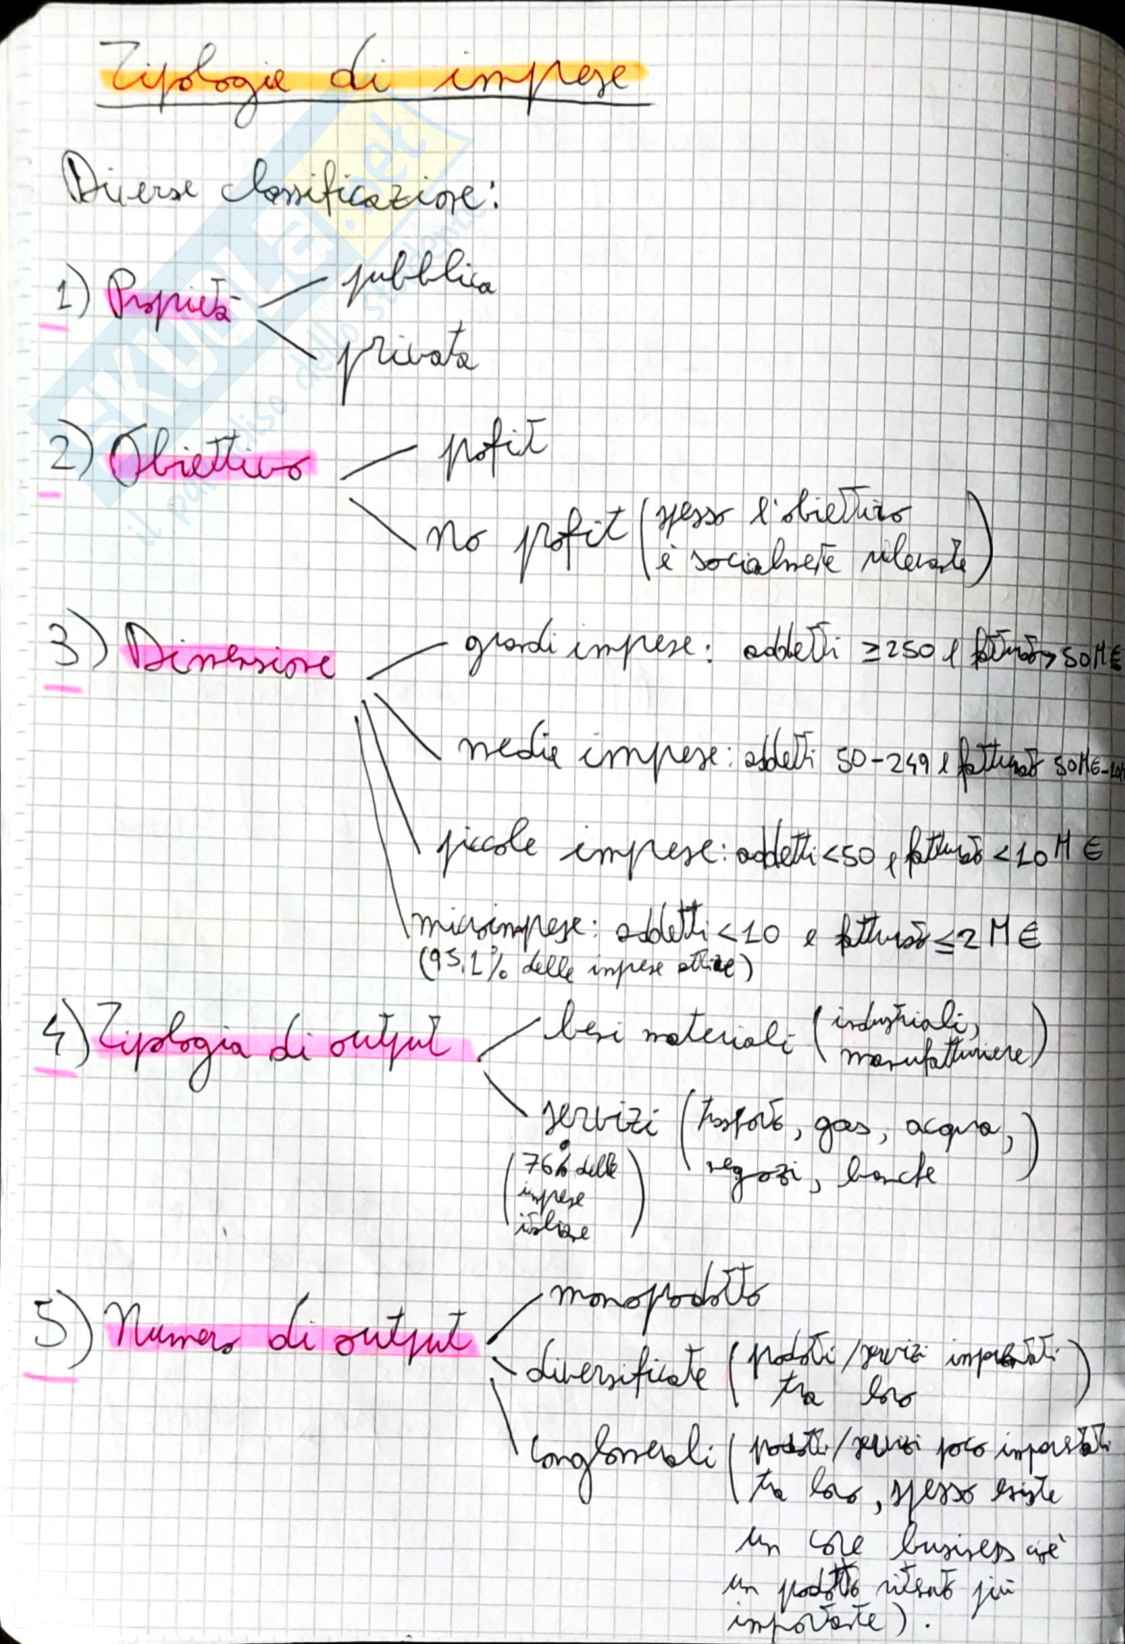 Tipologie di imprese
Diverse classificazione:
1) Proprietà
pubblica
privata
2) Obiettivo
profit
no profit (spesso l'obiettivo
è socialmente rilevante)
3) Dimensione
grandi imprese: addetti ≥250 e fatturato > 50M€
medie imprese: addetti 50-249 e fatturato 50M€-10M
piccole imprese: addetti <50 e fatturato <10M€
microimprese: addetti <10 e fatturato ≤2M€
(95,1% delle imprese attive)
4) Tipologia di output
beni materiali (industriali,
manufatturiere)
servizi (trasporto, gas, acqua,
negozi, banche)
(76% delle
imprese
italiane)
5) Numero di output
monoprodotto
diversificate (prodotti/servizi
tra loro)
conglomerali (prodotti/servizi poco
tra loro, spesso esiste
un core business cioè
un prodotto ritenuto più
importante).
SKUOLA.net
il paradiso dello studente